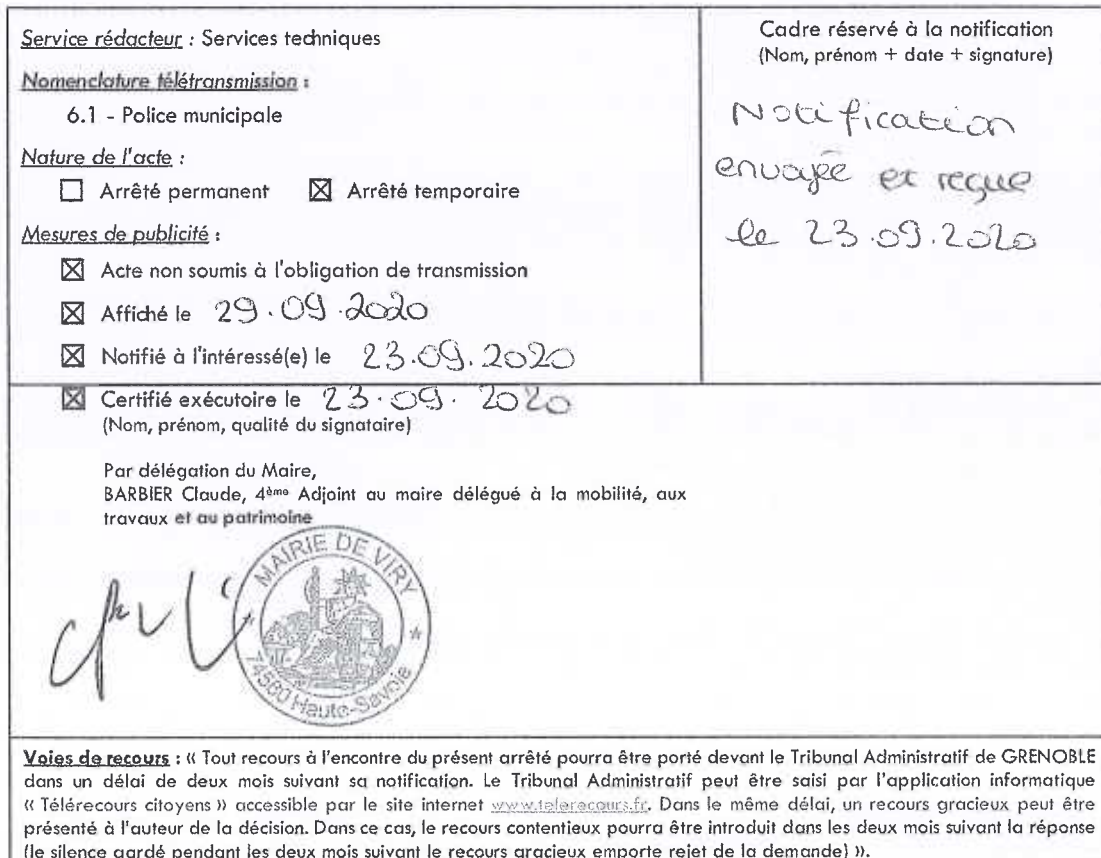 Service rédacteur : Services techniques
Nomenclature télétransmission :
6.1 - Police municipale
Nature de l'acte :
☐ Arrêté permanent ☒ Arrêté temporaire
Mesures de publicité :
☒ Acte non soumis à l'obligation de transmission
☒ Affiché le 29.09.2020
☒ Notifié à l'intéressé(e) le 23.09.2020
Cadre réservé à la notification
(Nom, prénom + date + signature)
Notification
envoyée et reçue
le 23.09.2020
☒ Certifié exécutoire le 23.09.2020
(Nom, prénom, qualité du signataire)
Par délégation du Maire,
BARBIER Claude, 4ème Adjoint au maire délégué à la mobilité, aux
travaux et au patrimoine
MAIRIE DE VIRY
74580 Haute-Savoie
Voies de recours : « Tout recours à l'encontre du présent arrêté pourra être porté devant le Tribunal Administratif de GRENOBLE
dans un délai de deux mois suivant sa notification. Le Tribunal Administratif peut être saisi par l'application informatique
« Télérecours citoyens » accessible par le site internet www.telerecours.fr. Dans le même délai, un recours gracieux peut être
présenté à l'auteur de la décision. Dans ce cas, le recours contentieux pourra être introduit dans les deux mois suivant la réponse
(le silence gardé pendant les deux mois suivant le recours gracieux emporte rejet de la demande) ».